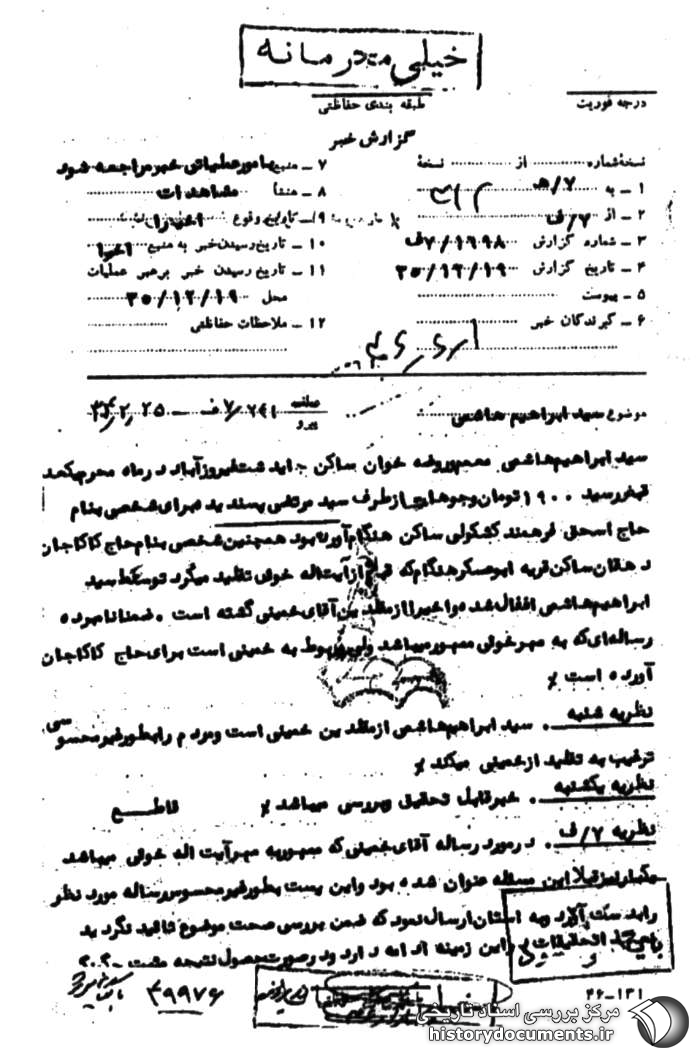 خیلی محرمانه
درجه فوریت
طبقه بندی حفاظتی
گزارش خبر
نسخه شماره ............ از ............ نسخه
۱ – به ۷/هـ
۲ – از ۷/ف
۳ – شماره گزارش ۷/۱۶۹۸ف
۴ – تاریخ گزارش ۳۵/۱۲/۱۹
۵ – پیوست
۶ – گیرندگان خبر
۷ – منبع مامور عملیاتی خبر مراجعه شود
۸ – منشأ مشاهدات
۹ – تاریخ وقوع اخیرا
۱۰ – تاریخ رسیدن خبر به منبع اخیرا
۱۱ – تاریخ رسیدن خبر برهبر عملیات
محل ۳۵/۱۲/۱۹
۱۲ – ملاحظات حفاظتی
موضوع سید ابراهیم هاشمی
پیرو ۷/۷۴۱ف – ۳۶,۲,۲۵
سید ابراهیم هاشمی معمم و روضه خوان ساکن جایدشت فیروزآباد در ماه محرم یکعدد
قبض رسید ۱۹۰۰ تومان وجوهات از طرف سید مرتضی پسندیده برای شخصی بنام
حاج اسحق فرهمند کشکولی ساکن هنگام آورده بود همچنین شخصی بنام حاج کاکاجان
دهقان ساکن قریه هنگام که قبلا از آیت اله خوئی تقلید میکرد توسط سید
ابراهیم هاشمی اغفال شده و اخیرا از مقلدین آقای خمینی گشته است . ضمنا نامبرده
رساله‌ای که به مهر خوئی ممهور میباشد ولی مربوط به خمینی است برای حاج کاکاجان
آورده است ٪
نظریه شنبه . سید ابراهیم هاشمی از مقلدین خمینی است و مردم را بطور غیر محسوسی
ترغیب به تقلید از خمینی میکند ٪
نظریه یکشنبه . خبر قابل تحقیق و بررسی میباشد ٪ قاطع
نظریه ۷/ف . در مورد رساله آقای خمینی که ممهور به مهر آیت اله خوئی میباشد
یکبار نیز قبلا این مسئله عنوان شده بود و این بست بطور غیر محسوس رساله مورد نظر
را بدست آورد و به استان ارسال نمود که ضمن بررسی صحت موضوع تائید نگردید
تحقیقات در این زمینه ادامه دارد و در صورت حصول نتیجه مثبت
۴۹۹۷۶
۲۶-۱۳۱
مرکز بررسی اسناد تاریخی
historydocuments.ir